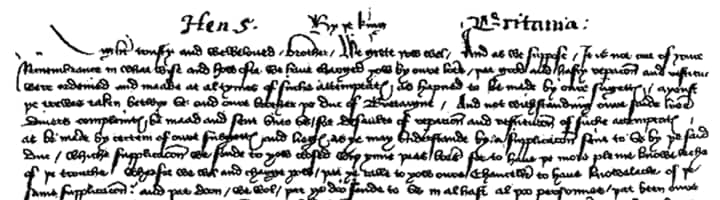 Hen 5. By þe king Britania:
trusty and welbeloved brother, We grete yow wel, And as we suppose, It is not out of youre
Remembrance in what wyse and how ofte we have charged yow by oure lres, þat good and hasty reparacion and restitucion
were ordeined and maade at al tymes of suche attemptatz as hapned to be made by oure suggetz, ayenst
þe trewes taken betwix us and oure brother þe duc of Bretaigne, And not withstanding oure saide lres
divers complaintz be maad and sent unto us for defaulte of reparacion and restitucion of suche attemptatz
as be made by certein of oure suggettz and liegez, as ye may understande by a supplicacion sent to us by þe said
duc, Whiche supplicacion we sende to yow closed wiþ ynne þees lres for to have þe more pleine knoweleche
of þe trouthe, Wherfore we wol and charge yow, þat ye calle to yow oure Chanceller to have knoweleche of þe
same supplicacion, and þat doon, we wol, þat ye do sende to us in al haste al þoo persones, þat been oure